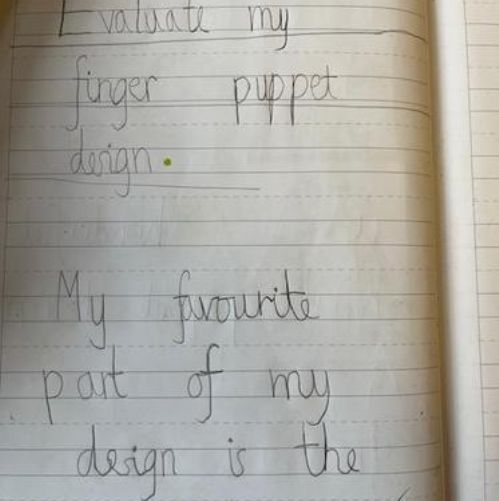 Evaluate my
finger puppet
design.
My favourite
part of my
design is the